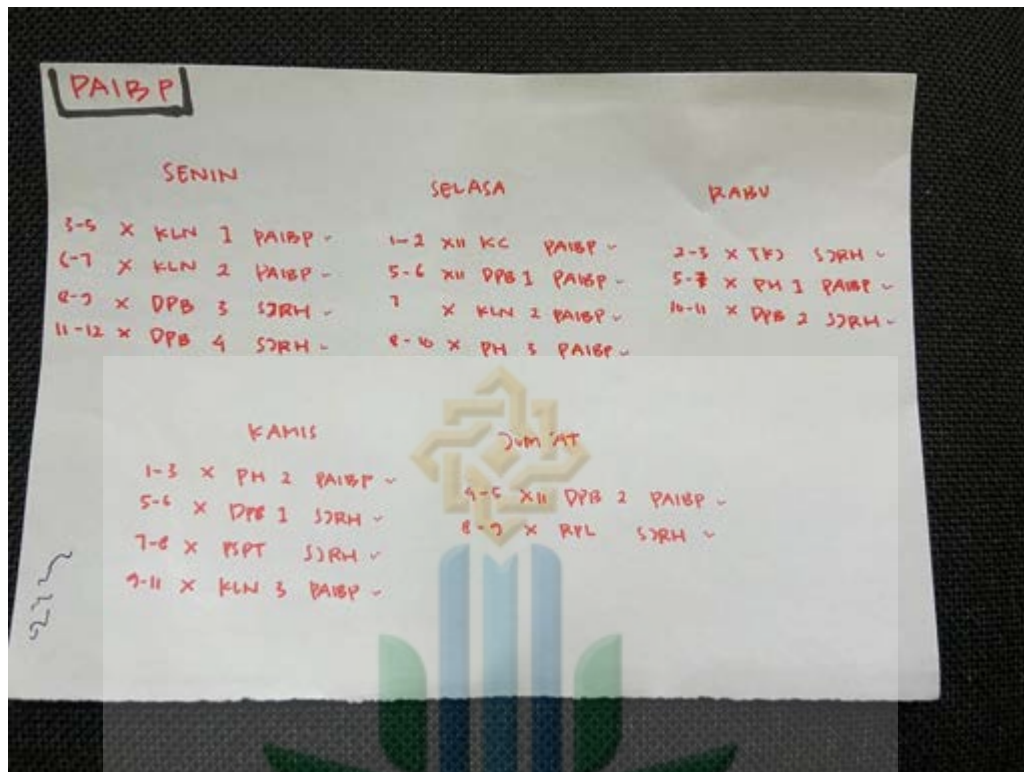 PAIBP
SENIN
3-5 X KLN 1 PAIBP
6-7 X KLN 2 PAIBP
8-9 X DPB 3 SJRH
11-12 X DPB 4 SJRH
SELASA
1-2 XII KC PAIBP
5-6 XII DPB 1 PAIBP
7 X KLN 2 PAIBP
8-10 X PH 3 PAIBP
RABU
2-3 X TKJ SJRH
5-7 X PH 1 PAIBP
10-11 X DPB 2 SJRH
KAMIS
1-3 X PH 2 PAIBP
5-6 X DPB 1 SJRH
7-8 X PSPT SJRH
9-11 X KLN 3 PAIBP
JUM'AT
4-5 XII DPB 2 PAIBP
8-9 X RPL SJRH